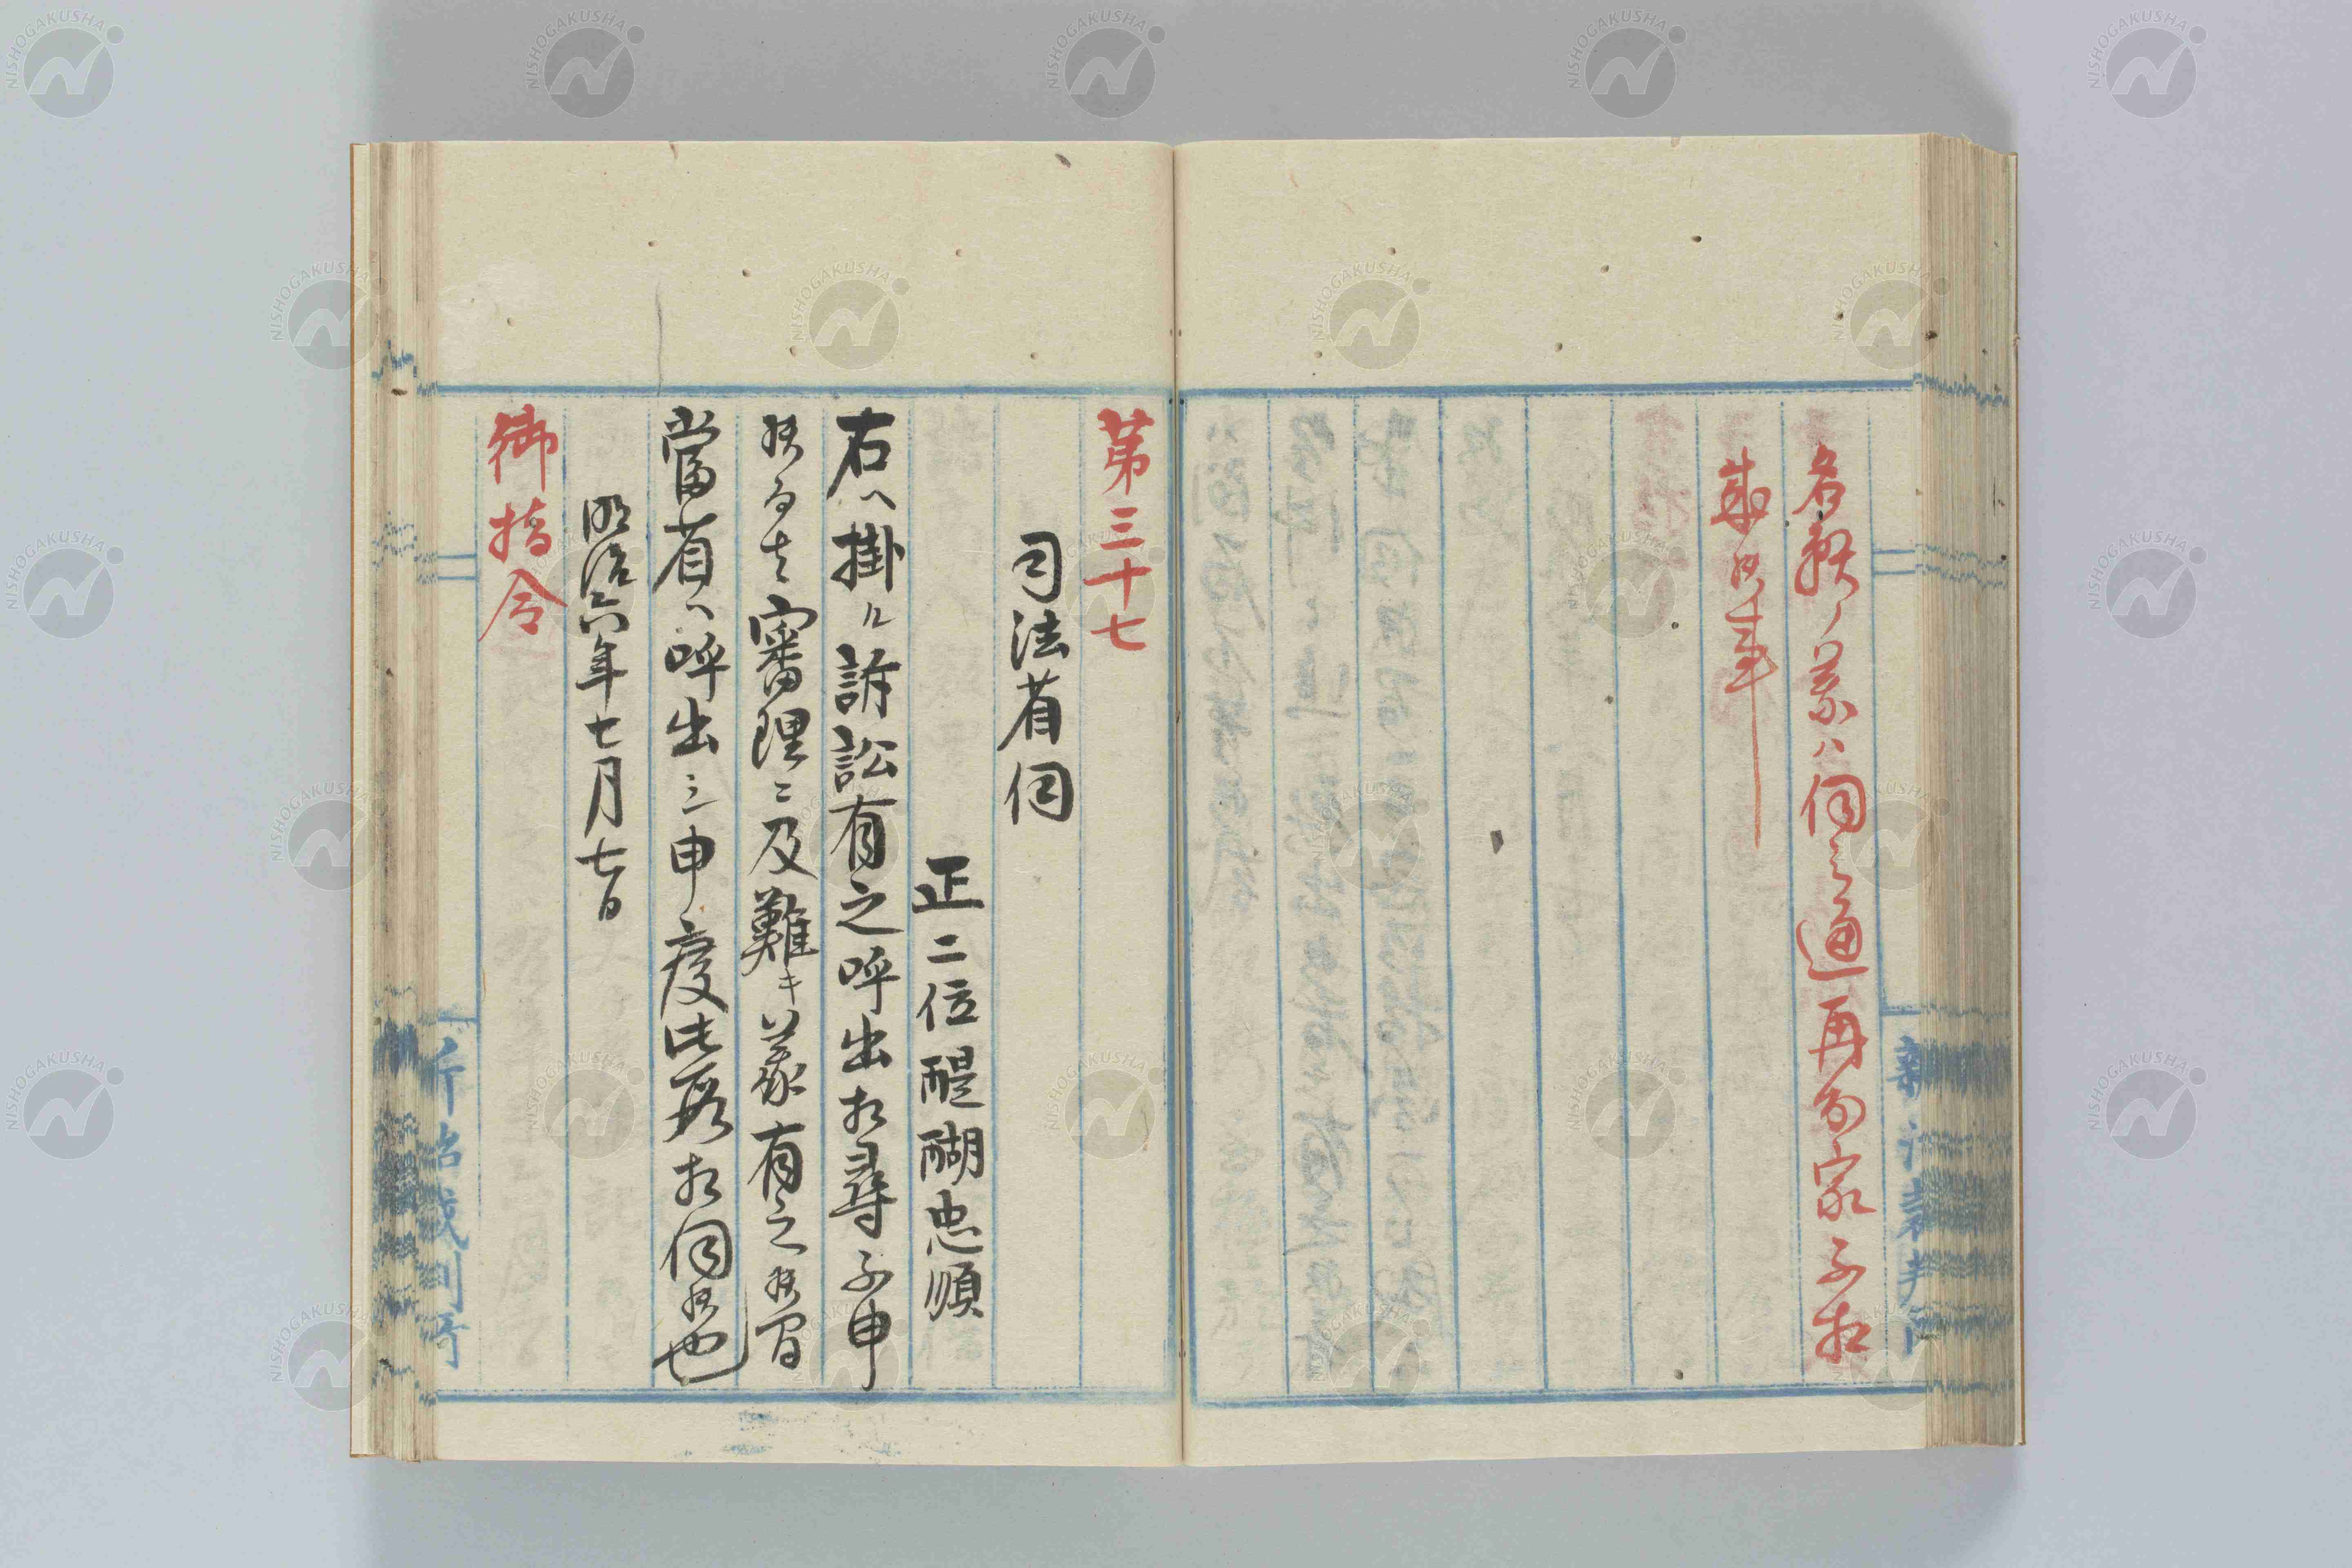 名勲ノ義ハ伺之通再勾家ニ不相
成候事
第三十七
司法省伺
正二位醍醐忠順
右ハ掛ル訴訟有之呼出相尋不申
候而ハ審理ニ及難キ義有之候間
當省ヘ呼出シ申度此段相伺候也
明治六年七月七日
御指令
NISHOGAKUSHA